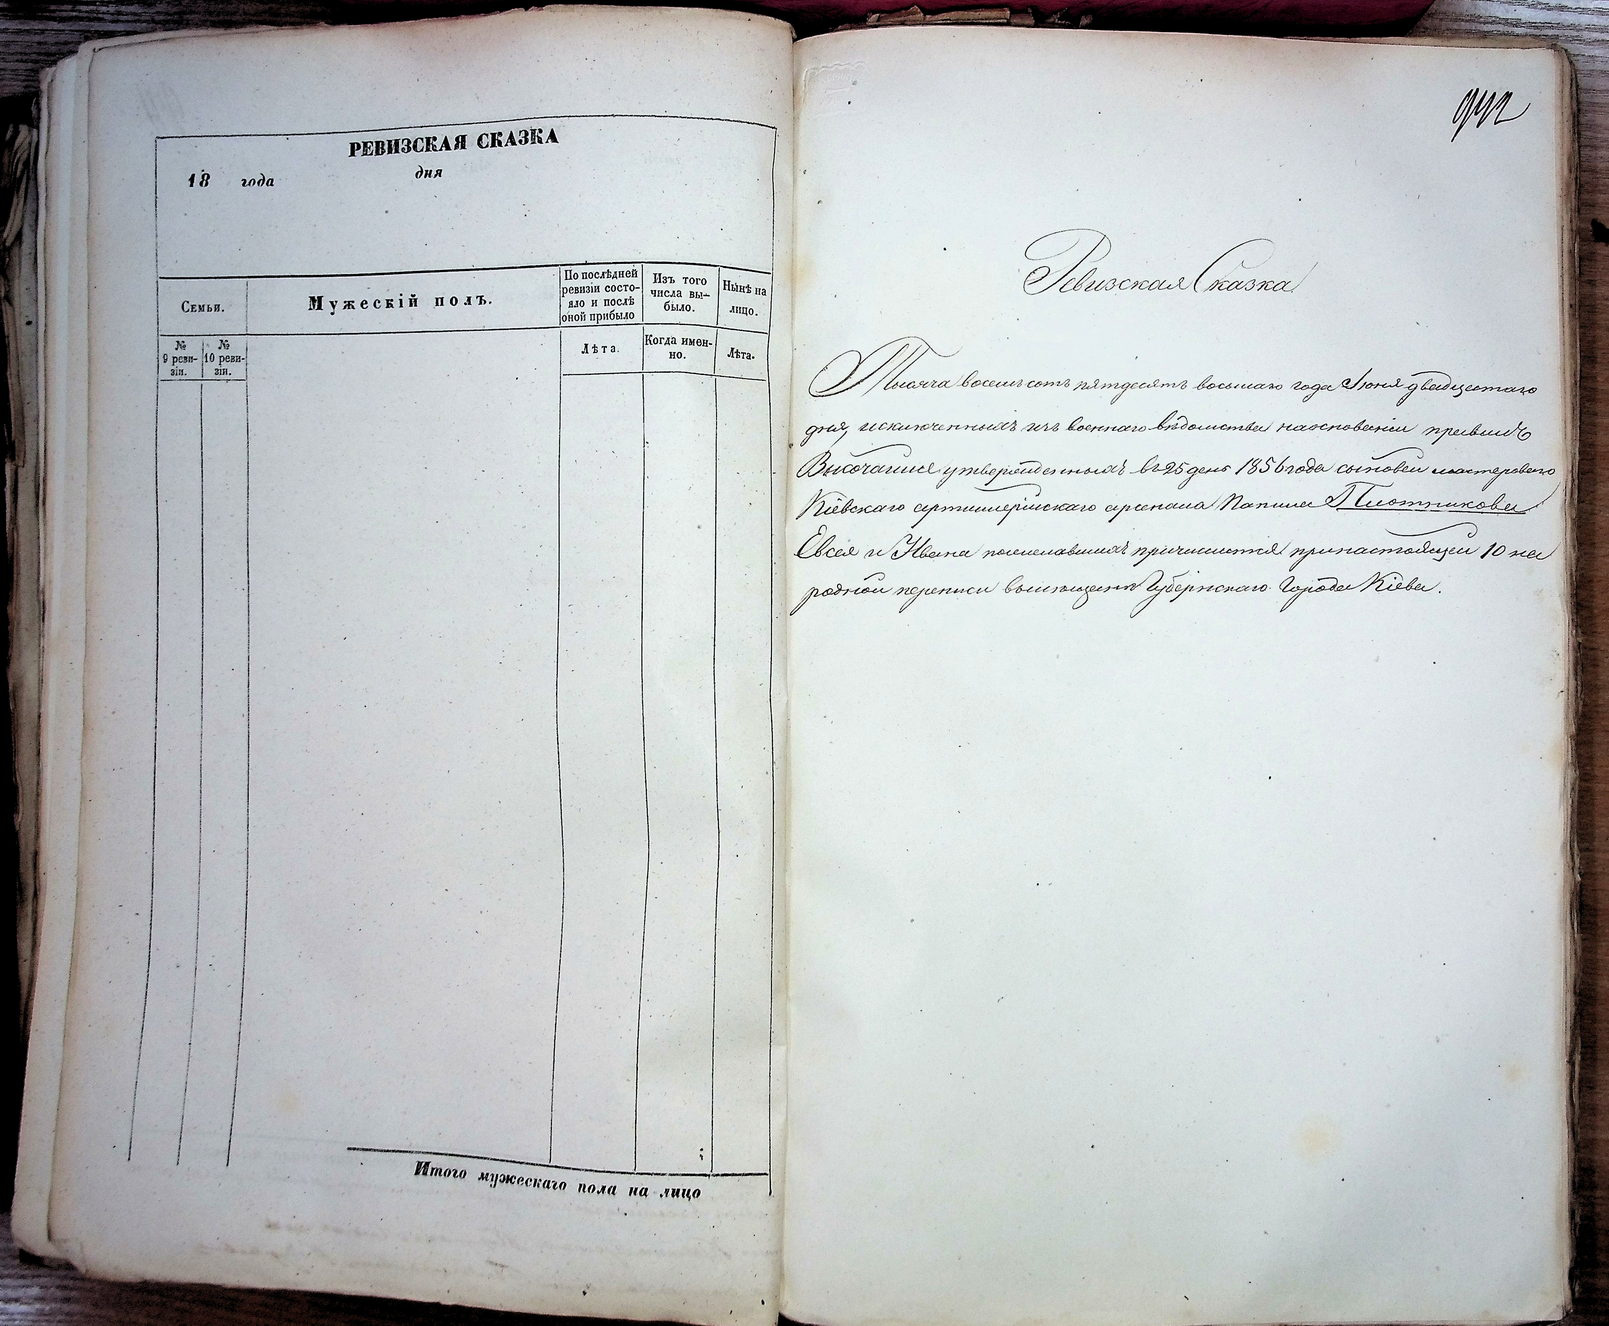 РЕВИЗСКАЯ СКАЗКА
18 года дня
Семьи.
Мужескій полъ.
По послѣдней
ревизіи состо-
яло и послѣ
оной прибыло
Изъ того
числа вы-
было.
Нынѣ на
лицо.
№
9 реви-
зіи.
№
10 реви-
зіи.
Лѣта.
Когда имен-
но.
Лѣта.
Итого мужескаго пола на лицо
Ревизская Сказка
Тысяча восемьсотъ пятдесятъ восьмаго года Іюня двадцетаго
дня, исключенныхъ изъ военнаго вѣдомства наосновании правилъ
Высочайше утвержденныхъ въ 25 день 1856 года сыновей мастероваго
Кіевскаго артиллерійскаго арсенала Плотникова
Евсея и Ивана пожелавшихъ причислится принастоящей 10 на
родной переписи вмещане Губернскаго Города Кіева.